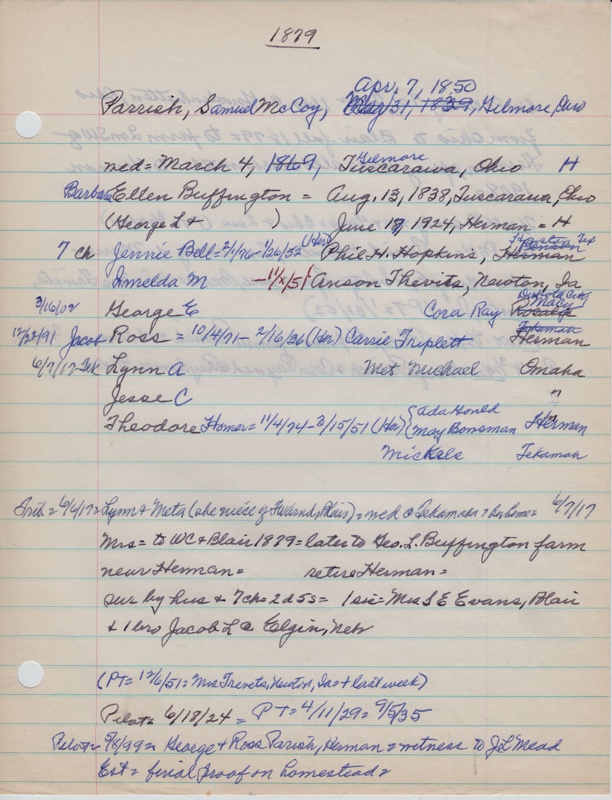 1879
Apr. 7, 1850
Parrish, Samuel McCoy, May 31, 1839, Gilmore, Ohio
Gilmore
med = March 4, 1869, Tuscarawa, Ohio H
Barbara Ellen Buffington = Aug. 13, 1838, Tuscarawa, Ohio
(George L + ) June 18, 1924, Herman = H
7 ch Jennie Bell = 2/1/76 - 1/26/52 (Her) Phil H. Hopkins, Herman
Imelda M - 11/x/51 Anson Thevits, Newton, Ia
3/16/02 George E Cora Ray Rosalie
12/22/91 Jacob Ross = 10/4/71 - 2/16/26 (Her) Carrie Triplett Herman
6/7/17 Tek Lynn A Met Michael Omaha
Jesse C "
Theodore Homer = 11/4/74 - 3/15/51 (Her) { Ada Gould
May Bonsman Herman
Mickels Tekamah
6/6/17 = Lynn & Meta (she niece of , Blair) = med @ Tekamah > her home = 6/7/17
Mrs = to WC & Blair 1879 = later to Geo. L. Buffington farm
near Herman = retire Herman =
sur by hus & 7 ch = 2d 5s = 1 sis = Mrs S E Evans, Blair
& 1 bro Jacob L @ Elgin, Neb
(PT = 12/6/51 = Mrs Trevets, Newton, Ia = + last week)
Pilot = 6/18/24 = PT = 4/11/29 = 9/5/35
Pilot = 2/8/99 = George & Ross Parish, Herman = witness to J L Mead
Est = final proof on homestead =